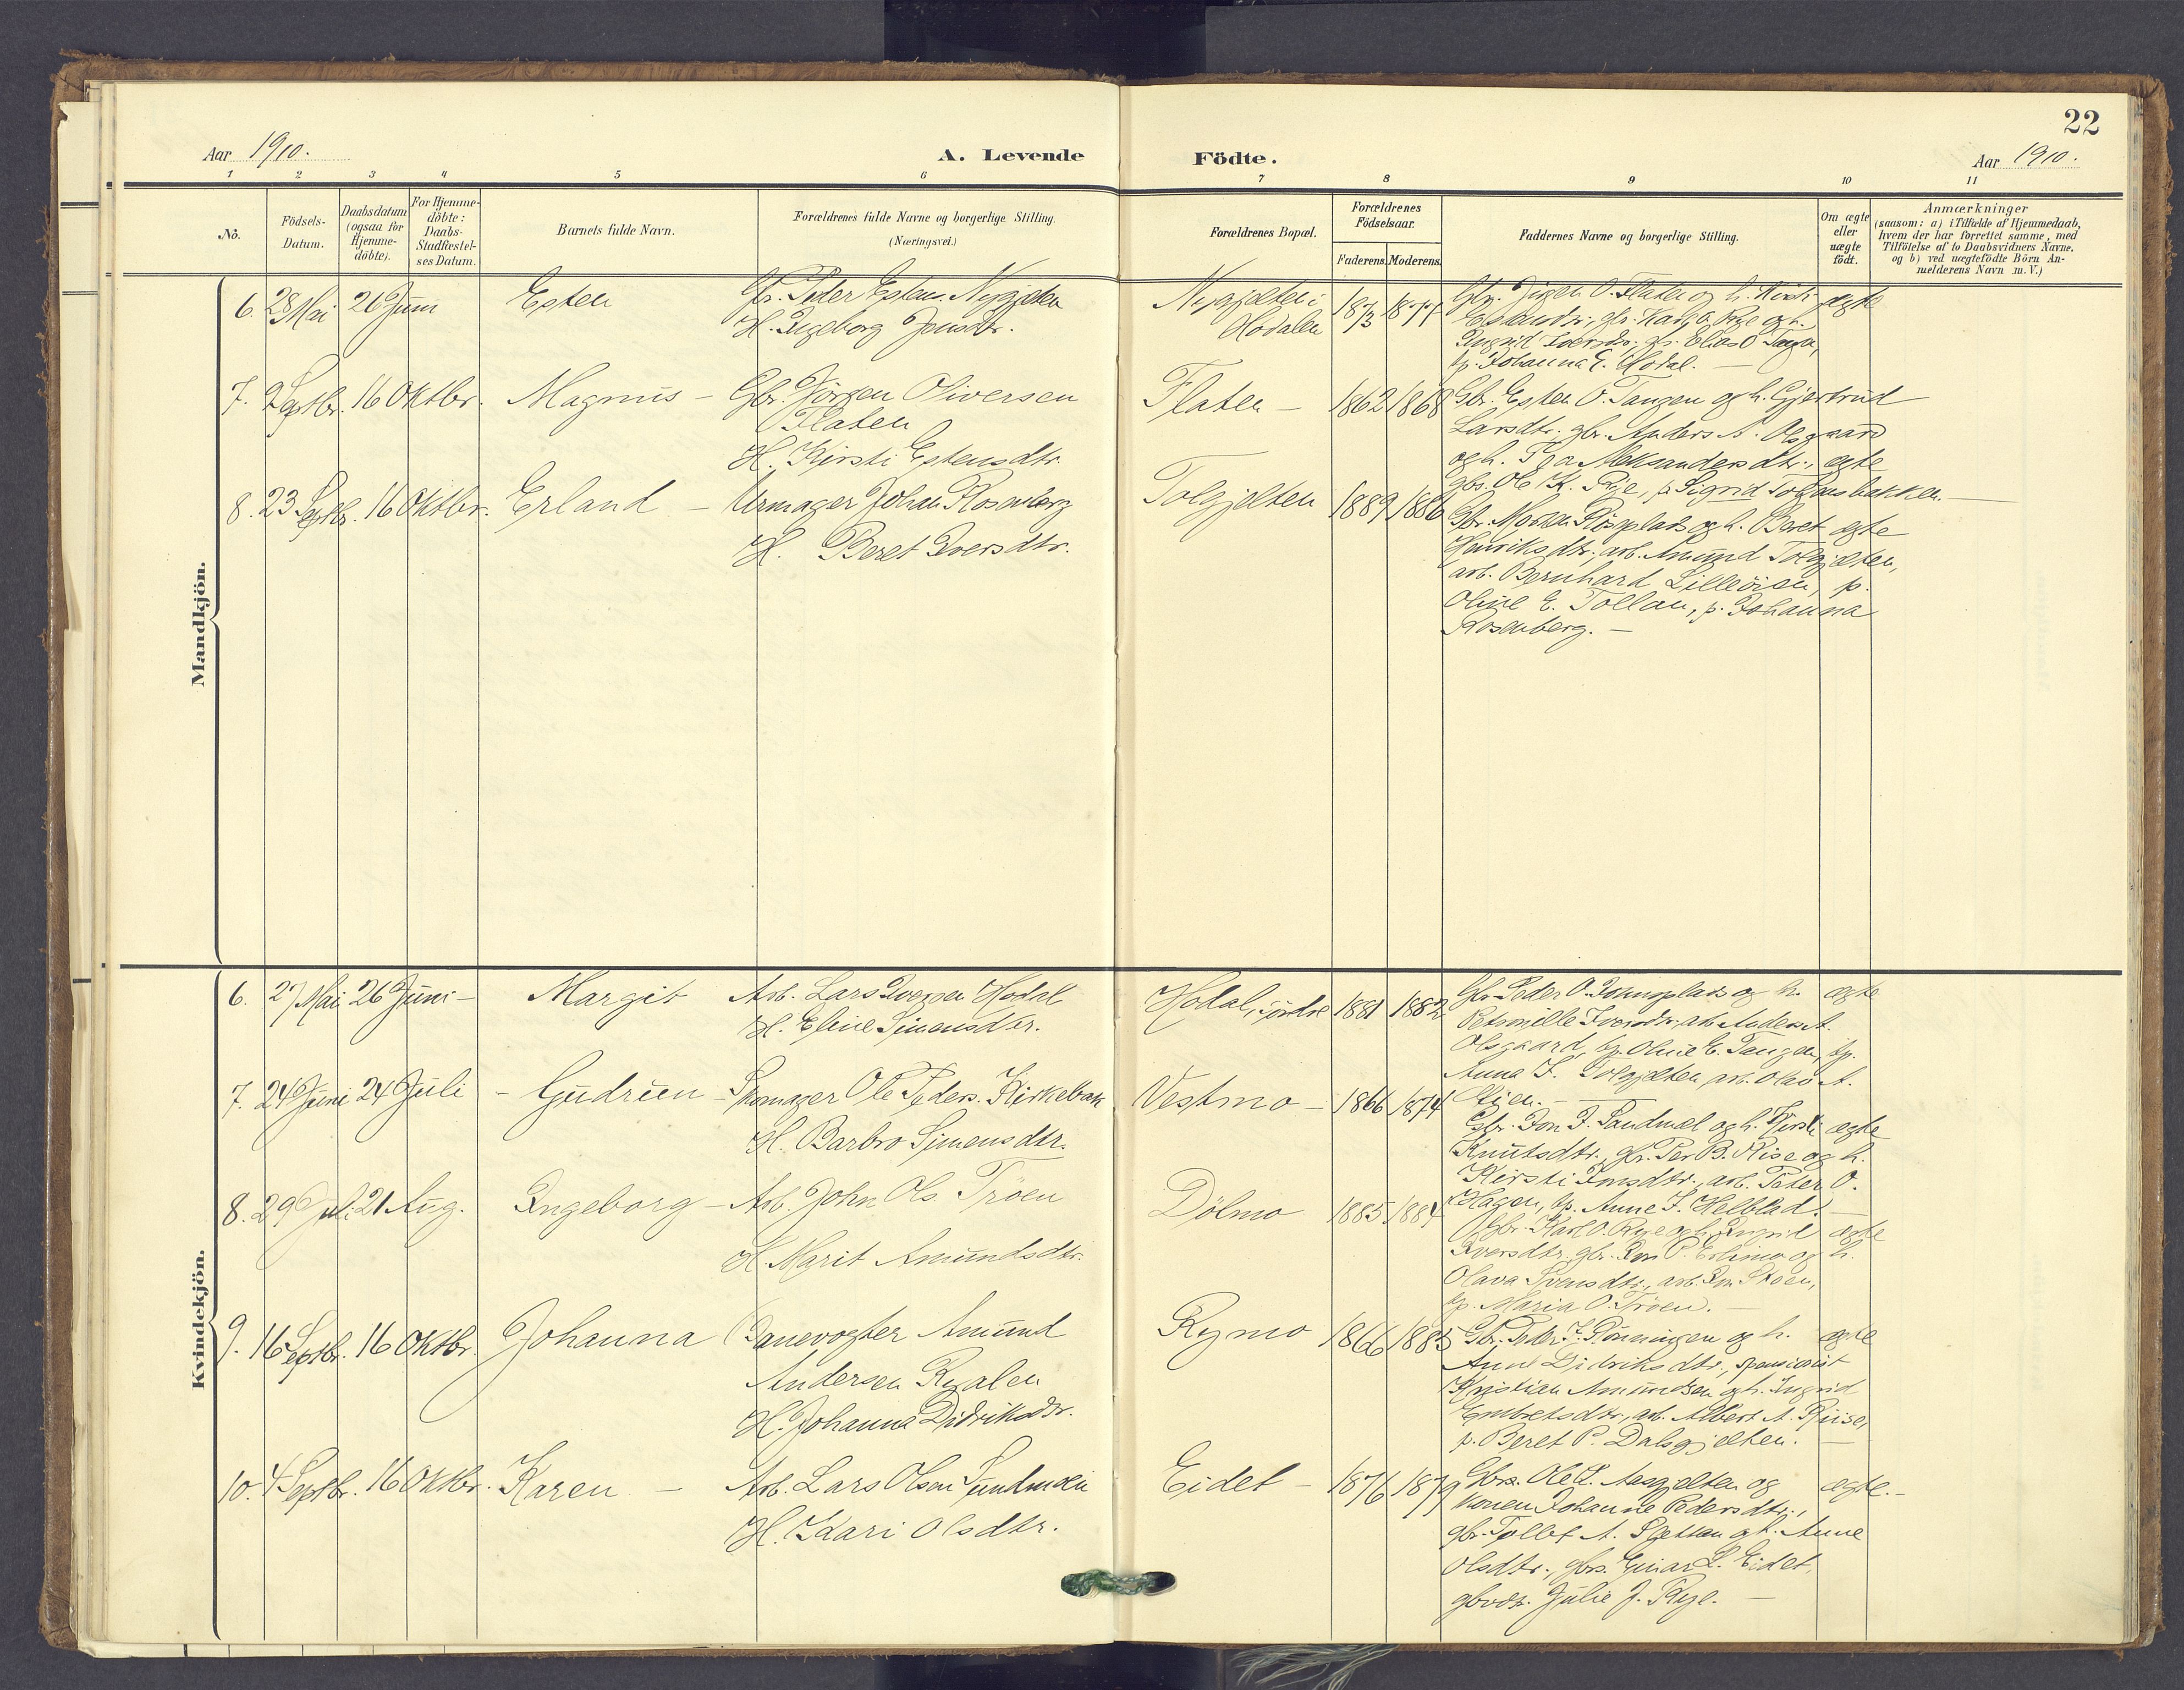 22
Aar 1910.
A. Levende Födte.
Aar 1910.
1 2 3 4 5 6 7 8 9 10 11
No.
Födsels-
Datum.
Daabsdatum
(ogsaa for
Hjemme-
döbte).
For Hjemme-
döbte:
Daabs-
Stadfæstel-
ses Datum.
Barnets fulde Navn.
Forældrenes fulde Navne og borgerlige Stilling.
(Næringsvei.)
Forældrenes Bopæl.
Forældrenes
Födselsaar.
Faderens. Moderens.
Faddernes Navne og borgerlige Stilling.
Om ægte
eller
uægte
födt.
Anmærkninger
(saasom: a) i Tilfælde af Hjemmedaab,
hvem der har forrettet samme, med
Tilföielse af to Daabsvidners Navne,
og b) ved uægtefödte Börn An-
melderens Navn m. V.)
Mandkjön.
6. 28 Mai 26 Juni Esten
Gbr. Peder Estens. Nygjelten
H. Ingeborg Jonsdtr.
Nygjelten i
Hodalen
1873
Gbr. Jörgen O. Flaten og h. Kirsti
Estensdtr., gbr. Karl O. Rye og h.
Ingrid Iversdtr., gbr. Elias O.
p. Johanna E. Hodal. —
ægte
7. 2 Septbr. 16 Oktbr. Magnus –
Gbr. Jörgen Oliversen
Flaten
H. Kirsti Estensdtr.
Flaten – 1862 1868
Gbr. Esten O. Tangen og h. Gjertrud
Larsdtr., gbr. Anders A. Olsgaard
og h. Aleksandersdtr.,
gbs. Ole K. Rye, p. Sigrid
ægte
8. 23 Septbr. 16 Oktbr. Erland –
Urmager Johan Rosenberg
H. Beret Iversdtr.
Tolgjelten 1889 1886
Gbr. Morten Röseplads og h. Beret
Henriksdtr., arb. Amund Tolgjelten,
arb. Bernhard Lilleöien, p.
Oline E. Tollan, p. Johanna
Rosenberg. —
ægte
Kvindekjön.
6. 27 Mai 26 Juni – Margit
Arb. Lars Iversen Hodal
H. Eline Simensdtr.
Hodal, söndre 1881 1882
Gbr. Peder O. og h.
Petronille Iversdtr., arb. Anders A.
Olsgaard, tp. Oline E. Tangen, tp.
Anna I. Tolgjelten, arb. Olav A.
ægte
7. 24 Juni 24 Juli – Gudrun –
Skomager Ole Peders. Kirkebak
H. Barbro Simensdtr.
Vestmo – 1866 1874
Gbr. Jon J. Sandmæl og h. Kirsti
Knutsdtr., gbr. Per B. Riise og h.
Kirsti Jonsdtr., arb. Peter O.
Hagen, tp. Anne J. Helblad. —
ægte
8. 29 Juli 21 Aug. Ingeborg –
Arb. John Ols. Tröen
H. Marit Amundsdtr.
Dölmo 1885 1884
Gbr. Karl O. Rye og h. Ingrid
Iversdtr., gbr. Jon P. Erlimo og h.
Olava Svensdtr., arb. Jon
tp. Maria O. Tröen. —
ægte
9. 16 Septbr. 16 Oktbr. Johanna
Banevogter Amund
Andersen Ryalen
H. Johanna Didriksdtr.
Rymo 1866 1885
Gbr. Peder J. Rönningen og h.
Anne Didriksdtr., pensionist
Kristian Amundsen og h. Ingrid
Embretsdtr., arb. Albert A. Riise,
p. Beret P. Dalsgjelten. —
ægte
10. 4 Septbr. 16 Oktbr. Karen –
Arb. Lars Olsen Sundmoen
H. Kari Olsdtr.
Eidet – 1876 1879
Gbrs. Ole L. Aasgjelten og
konen Johanne Pedersdtr.,
gbr. Tollef A. Sletten og h. Anne
Olsdtr., gbrs. Einar L. Eidet,
gbrdtr. Julie J. Rye. —
ægte. –